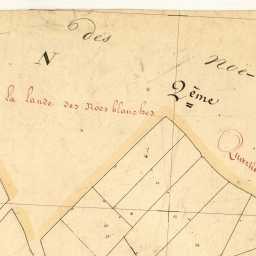 des
N
Noë-
la lande des Noës blanches
2ème
Quartie